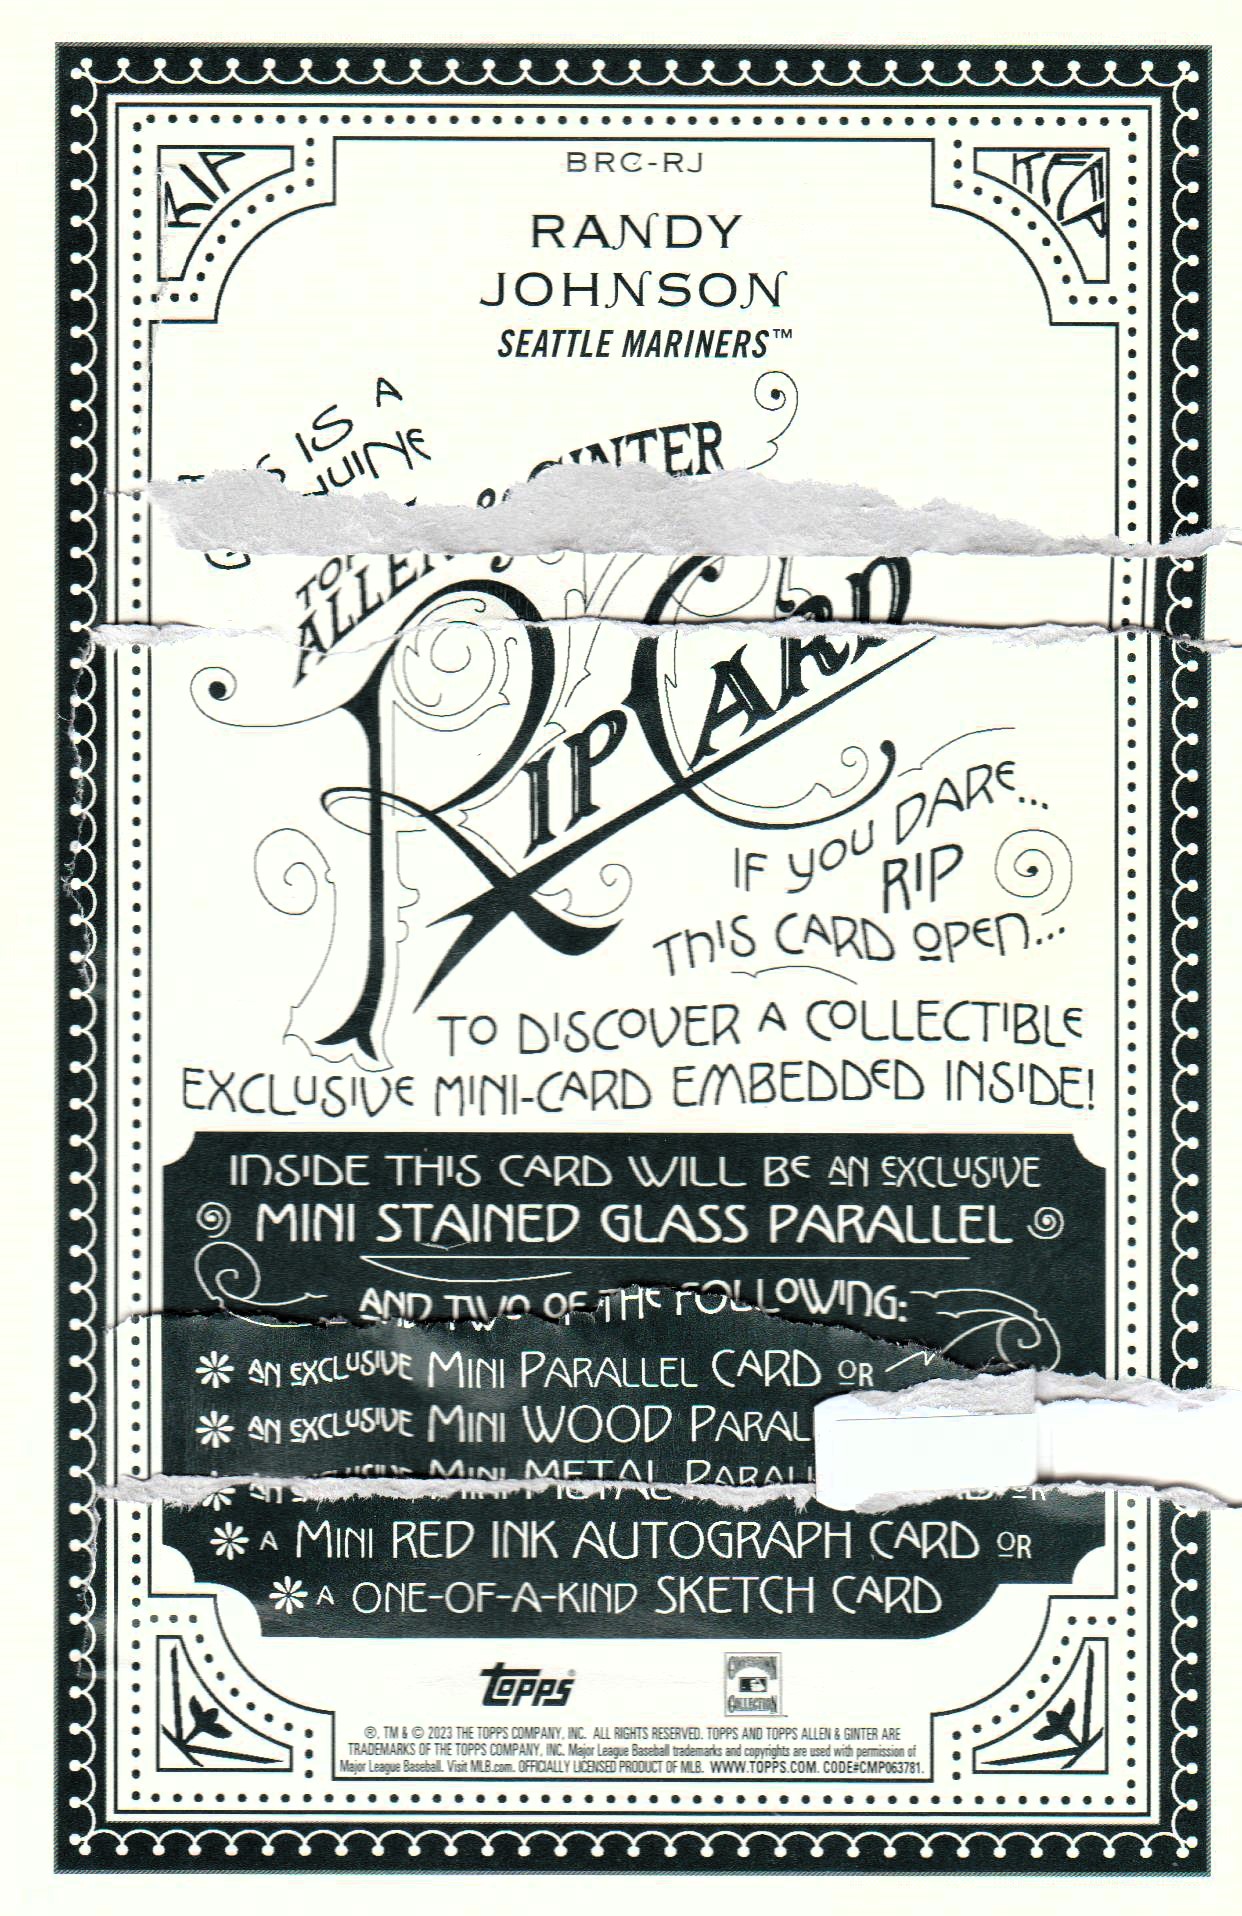 RIP
KEEP
BRC-RJ
RANDY
JOHNSON
SEATTLE MARINERS™
IS A
GINTER
ALLEN
RIP CARD
IF YOU DARE...
RIP
THIS CARD OPEN...
TO DISCOVER A COLLECTIBLE
EXCLUSIVE MINI-CARD EMBEDDED INSIDE!
INSIDE THIS CARD WILL BE AN EXCLUSIVE
MINI STAINED GLASS PARALLEL
AND TWO OF THE FOLLOWING:
AN EXCLUSIVE MINI PARALLEL CARD OR
AN EXCLUSIVE MINI WOOD PARAL
MINI METAL PARALL
A MINI RED INK AUTOGRAPH CARD OR
A ONE-OF-A-KIND SKETCH CARD
topps®
COOPERSTOWN
COLLECTION
®, TM & © 2023 THE TOPPS COMPANY, INC. ALL RIGHTS RESERVED. TOPPS AND TOPPS ALLEN & GINTER ARE
TRADEMARKS OF THE TOPPS COMPANY, INC. Major League Baseball trademarks and copyrights are used with permission of
Major League Baseball. Visit MLB.com. OFFICIALLY LICENSED PRODUCT OF MLB. WWW.TOPPS.COM. CODE#CMP063781.